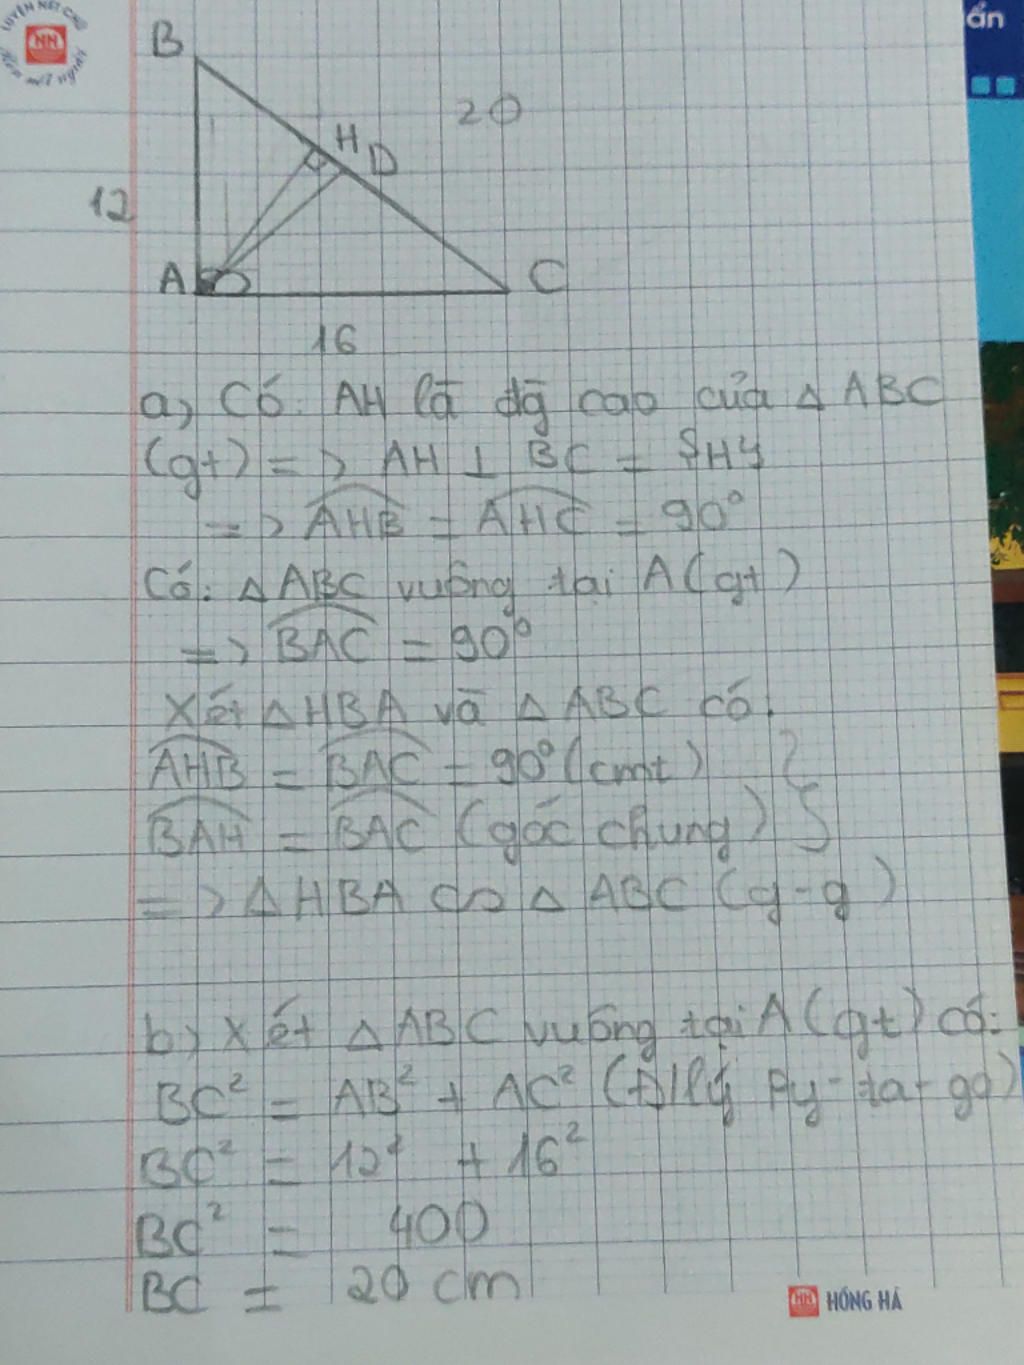 LUYỆN NÉT CHỮ
HH
Rèn nết người
ẩn
B
20
H
D
12
A
C
16
a, Có: AH là đg cao của △ ABC
(gt) => AH ⊥ BC = {H}
=> AHB = AHC = 90°
Có: △ ABC vuông tại A (gt)
=> BAC = 90°
Xét △ HBA và △ ABC có:
AHB = BAC = 90° (cmt) }
BAH = BAC (góc chung)
=> △ HBA ∽ △ ABC (g-g)
b, Xét △ ABC vuông tại A (gt) có:
BC² = AB² + AC² (Đ/lý Py-ta-go)
BC² = 12² + 16²
BC² = 400
BC = 20 cm
HH HỒNG HÀ